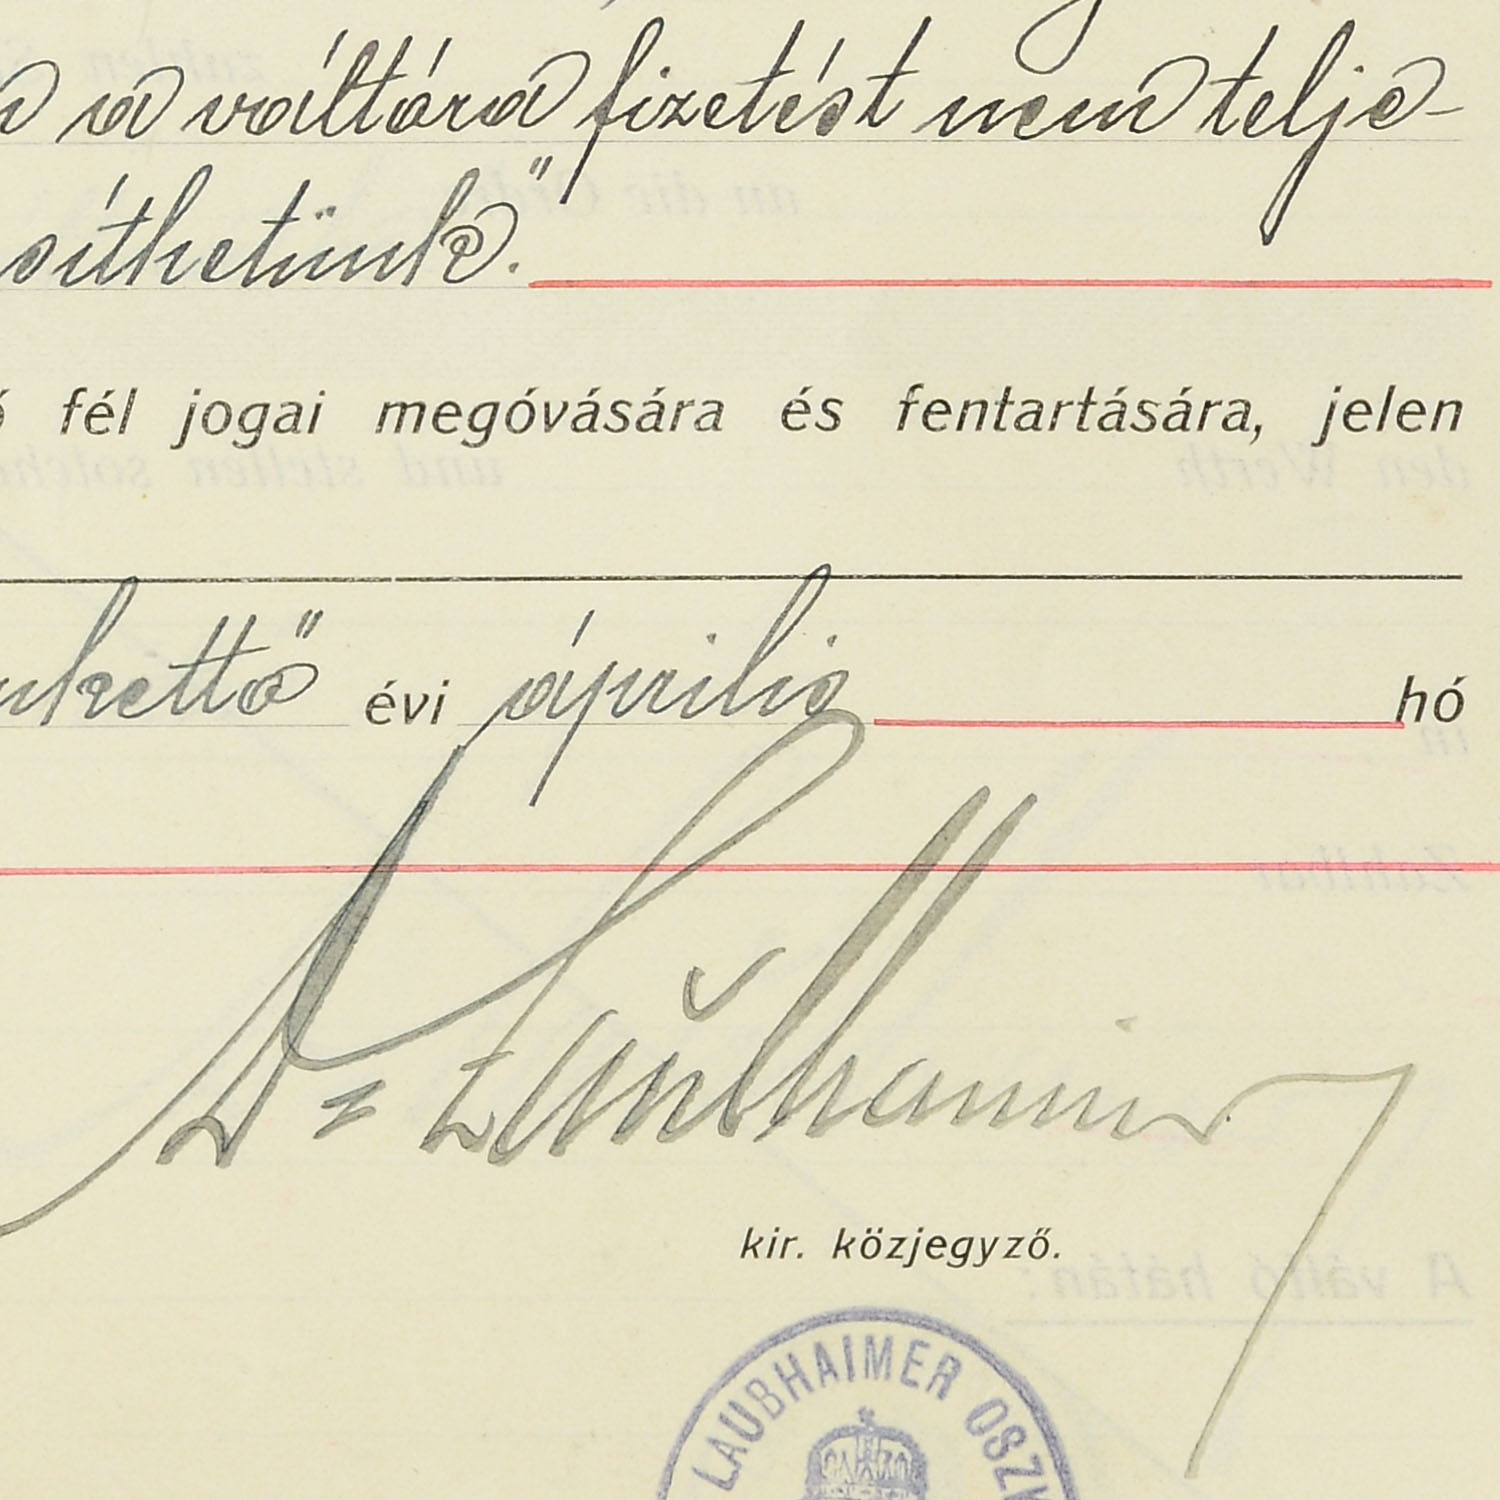 a váltóra fizetést nem telje-
síthetünk."
fél jogai megóvására és fentartására, jelen
évi április hó
Dr Laubhaimer
kir. közjegyző.
LAUBHAIMER OSZK